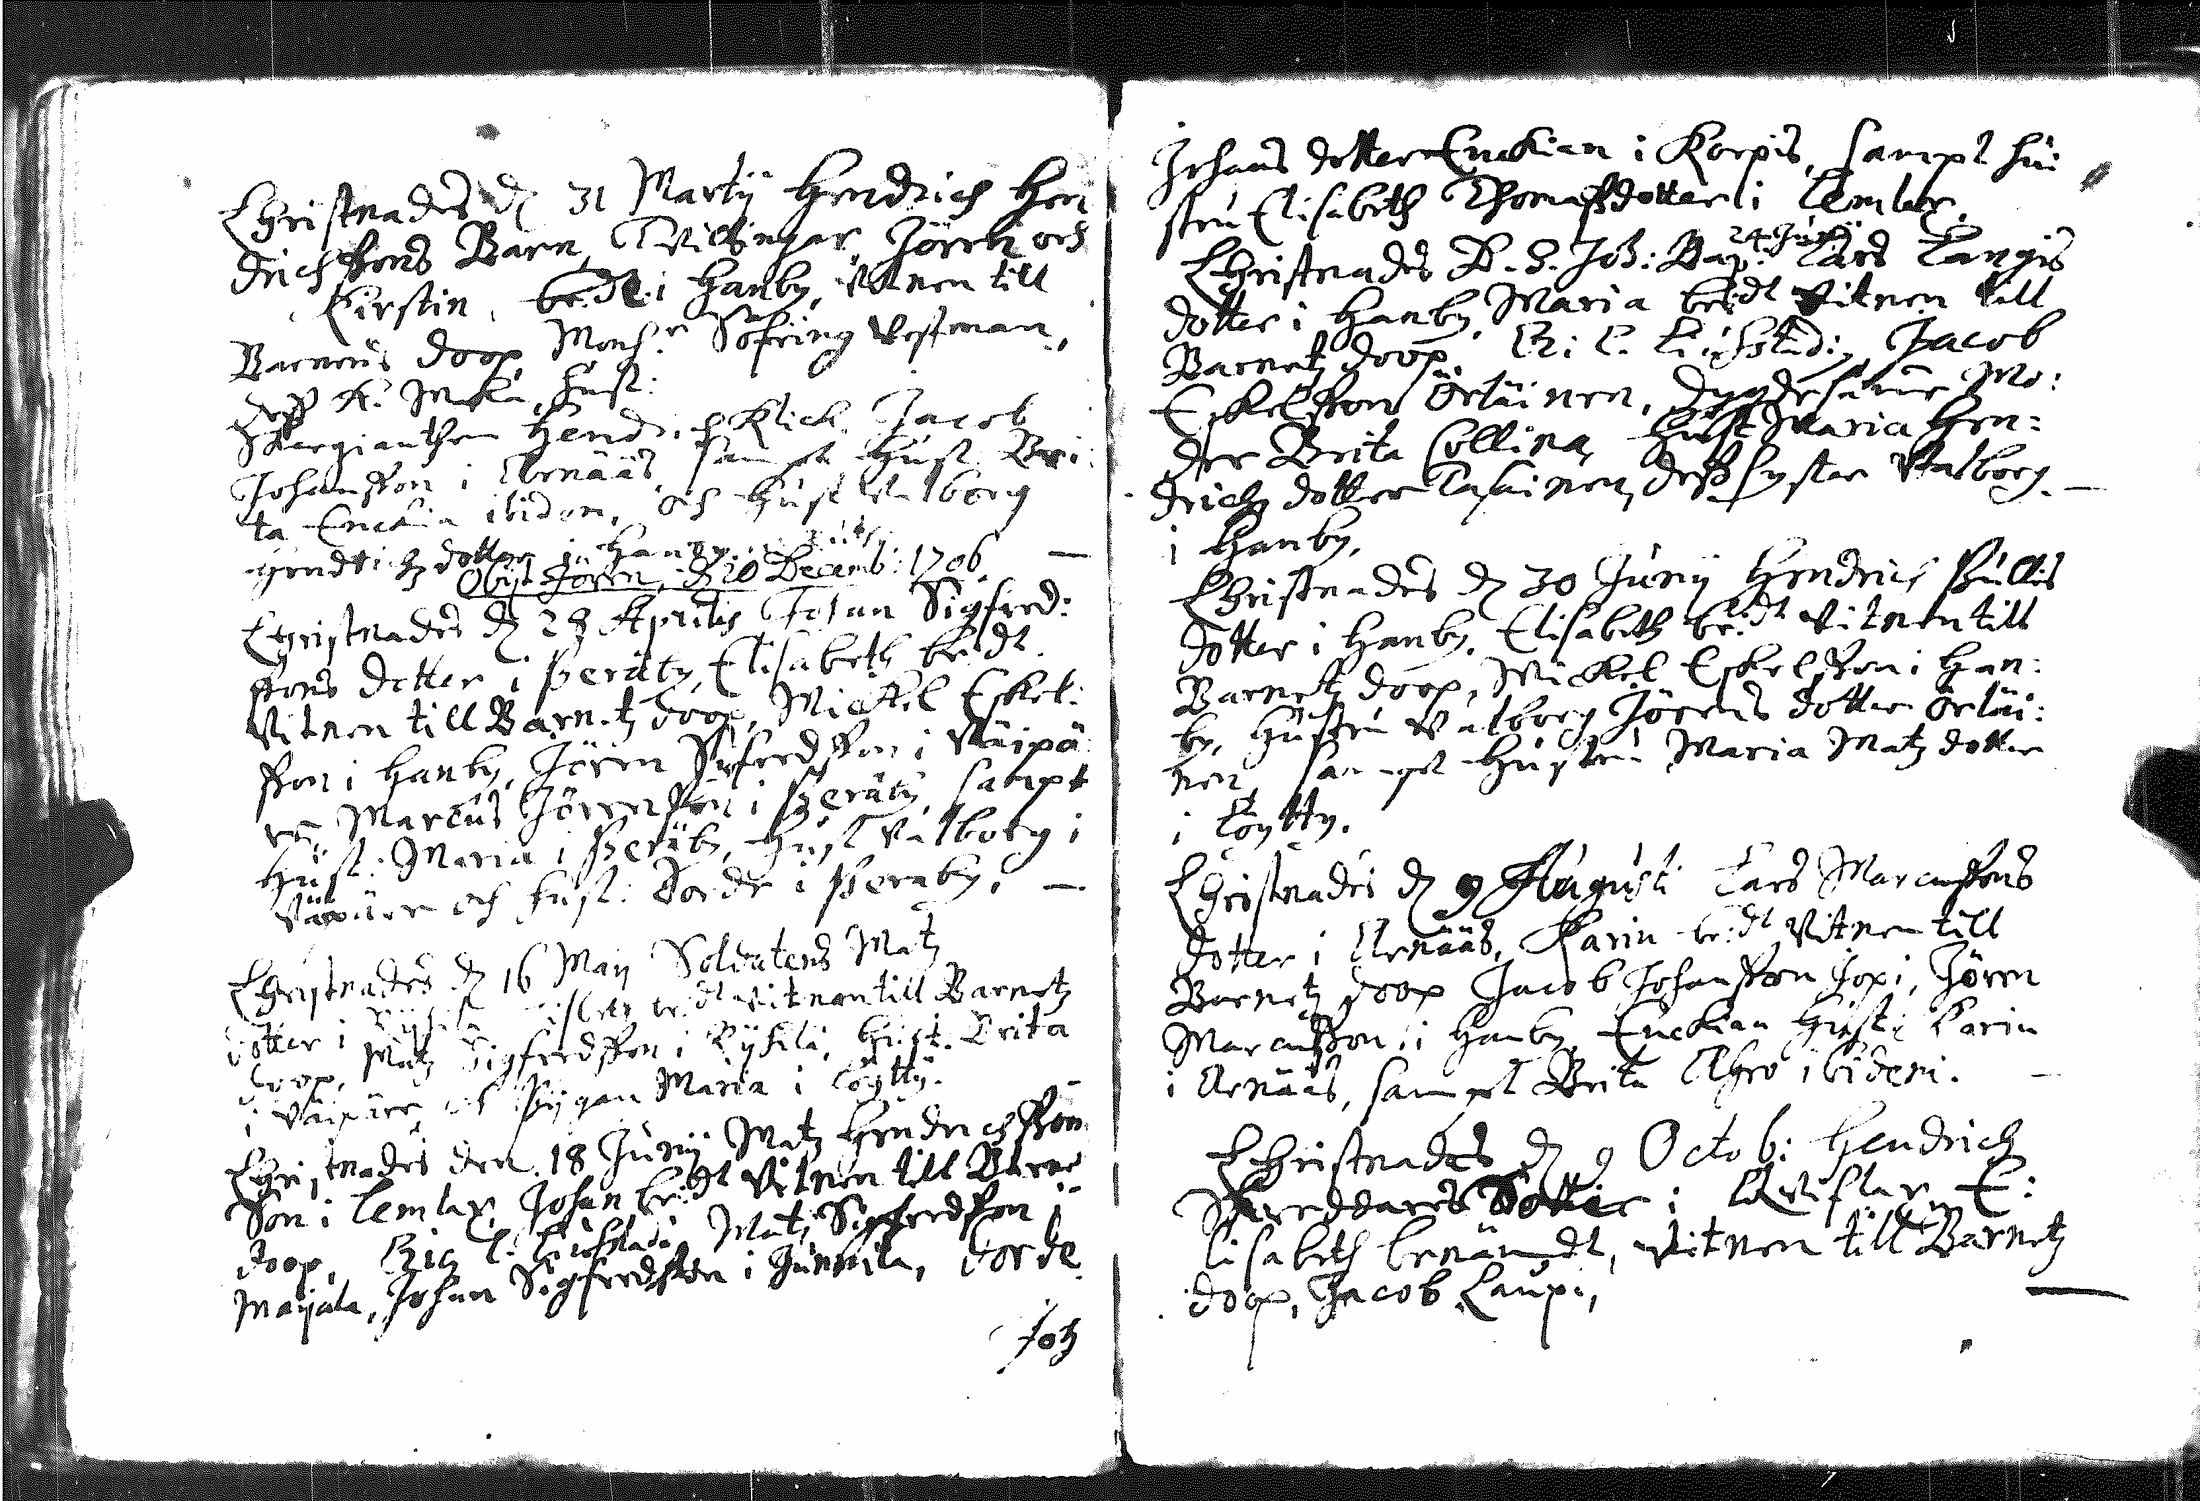 Christnades d 31 Martij Hendrich Hen
drichssons Barn, Tvillingar, Jören och
Kirstin, be:dt i Hanby, Vitnen till
Barnens doop, Mons:r Söfring Vestman,
dess K. hust:
Hendrich Klick, Jacob
Johansson i Arnääs, sampt Hust. Bri:
ta Enckia ibidem, och Hust Valborg
Hendrichz dotter i Hanby.
Obijt Jören, d 20 Decemb: 1706
Christnades d 28 Aprilis Johan Sigfred:
ssons dotter i Peräby, Elisabeth be:dt
Vitnen till Barnetz doop, Mickel Eskel:
sson i Hanby, Jören Sigfredsson i Väipä
re, Marcus Jörensson i Peräby, sampt
Hust: Maria i Peräby, Hust Valborg i
Väipäre och Hust: Dorde i Peraby.
Christnades d 16 Maij Soldatens Matz
dotter i be:dt Vitnen till Barnetz
doop, Matz Sigfredsson i Hust. Brita
i Väipäre, och Pijgan Maria i Löytty.
Christnades den 18 Junij Matz Hendrichsson
Son i Lemlax, Johan be:dt Vitnen till Barne
doop, Matz Sigfredsson i
Maijala, Johan Sigfredsson i Junnila, Dorde
Joh
Johans dotter Enckian i Korpis, sampt hu:
stru Elisabeth Thomassdotter i Lemlax.
24 Junij
Christnades D. S. Joh: Bap: Lars Langis
dotter i Hanby, Maria be:dt Vitnen till
Barnetz doop, Jacob
Eskelsson Örläinen, dygdesamme Mo:
der Brita Collina, Hust Maria Hen:
drichz dotter Tasainen, dess syster Valborg
i Hanby.
Christnades d 30 Junij Hendrich Pullis
dotter i Hanby, Elisabeth be:dt Vitnen till
Barnetz doop, Mickel Eskelsson i Han:
by, Hustru Valborg Jörens dotter Örläi:
nen, sampt Hustru Maria Matz dotter
i Löytty.
Christnades d 9 Augusti Lars Marcussons
dotter i Arnääs, Karin be:dt Vitnen till
Barnetz doop Jacob Johansson Jopi, Jören
Marcusson i Hanby, Enckian Hust: Karin
i Arnääs, sampt Brita ibidem.
Christnades d 9 Octob: Hendrich
Skreddares Dotter i Qviflax, E:
lisabeth benämdt, Vitnen till Barnetz
doop, Jacob Laupi,